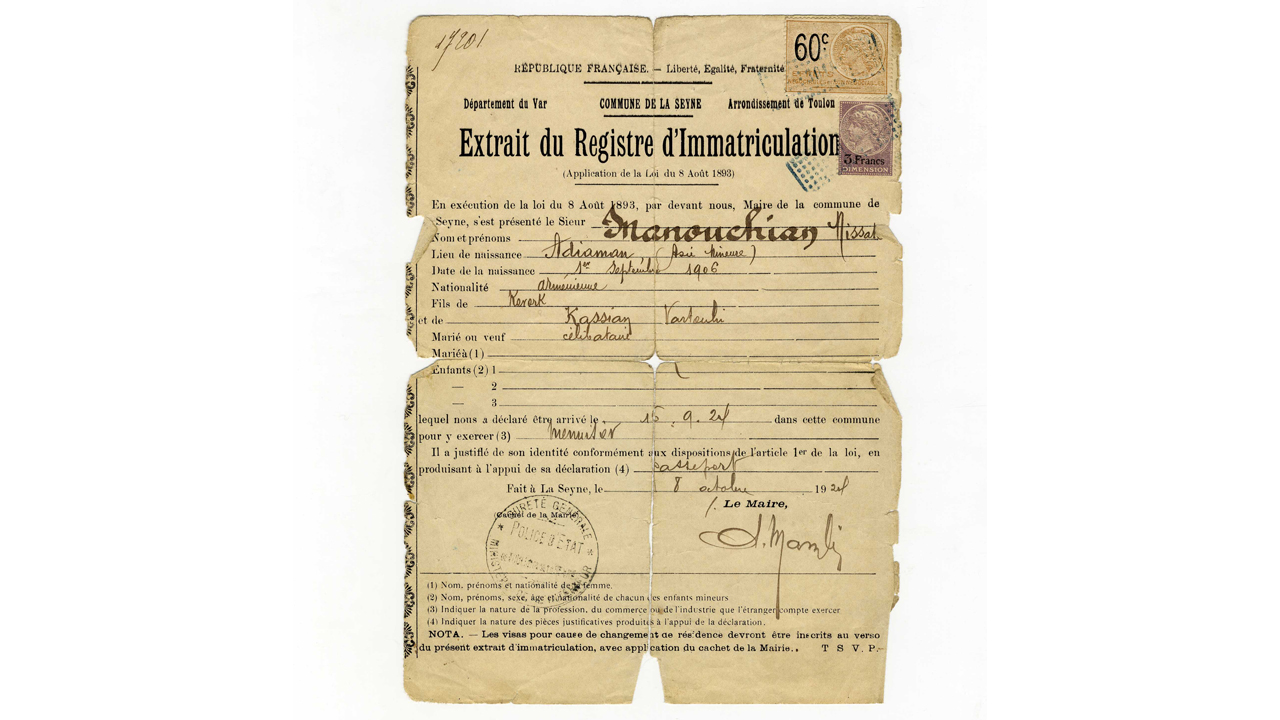 17201
60c
RÉPUBLIQUE FRANÇAISE. — Liberté, Egalité, Fraternité
Département du Var COMMUNE DE LA SEYNE Arrondissement de Toulon
Extrait du Registre d'Immatriculation
3 Francs
DIMENSION
(Application de la Loi du 8 Août 1893)
En exécution de la loi du 8 Août 1893, par devant nous, Maire de la commune de
Seyne, s'est présenté le Sieur
Nom et prénoms Manouchian Missak
Lieu de naissance Adiaman (Asie Mineure)
Date de la naissance 1er Septembre 1906
Nationalité arménienne
Fils de Kevork
et de Kassian Vartouhi
Marié ou veuf célibataire
Marié à (1)
Enfants (2) 1
— 2
— 3
lequel nous a déclaré être arrivé le 15.9.24 dans cette commune
pour y exercer (3) menuisier
Il a justifié de son identité conformément aux dispositions de l'article 1er de la loi, en
produisant à l'appui de sa déclaration (4) passeport
Fait à La Seyne, le 8 octobre 1924
Le Maire,
(Cachet de la Mairie)
SURETÉ GÉNÉRALE
POLICE D'ETAT
(1) Nom, prénoms et nationalité de la femme.
(2) Nom, prénoms, sexe, âge et nationalité de chacun des enfants mineurs
(3) Indiquer la nature de la profession, du commerce ou de l'industrie que l'étranger compte exercer
(4) Indiquer la nature des pièces justificatives produites à l'appui de la déclaration.
NOTA. — Les visas pour cause de changement de résidence devront être inscrits au verso
du présent extrait d'immatriculation, avec application du cachet de la Mairie. T S V. P.